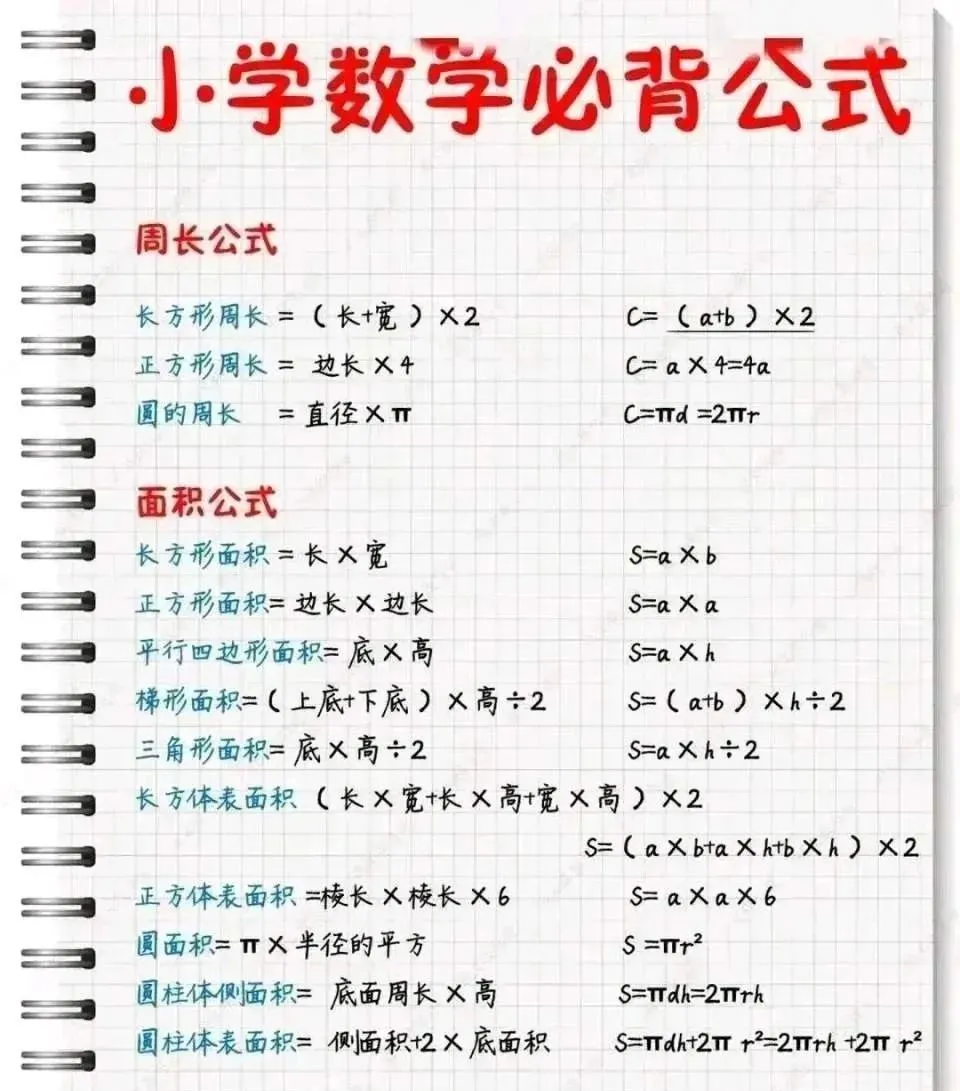 小学数学必背公式
周长公式
长方形周长 = ( 长+宽 ) ×2 C= ( a+b ) ×2
正方形周长 = 边长×4 C= a×4=4a
圆的周长 = 直径×π C=πd =2πr
面积公式
长方形面积 = 长×宽 S=a×b
正方形面积= 边长×边长 S=a×a
平行四边形面积= 底×高 S=a×h
梯形面积= ( 上底+下底 ) ×高÷2 S= ( a+b ) ×h÷2
三角形面积= 底×高÷2 S=a×h÷2
长方体表面积 ( 长×宽+长×高+宽×高 ) ×2
S= ( a×b+a×h+b×h ) ×2
正方体表面积 =棱长×棱长×6 S= a×a×6
圆面积= π×半径的平方 S =πr²
圆柱体侧面积= 底面周长×高 S=πdh=2πrh
圆柱体表面积= 侧面积+2×底面积 S=πdh+2π r²=2πrh +2π r²